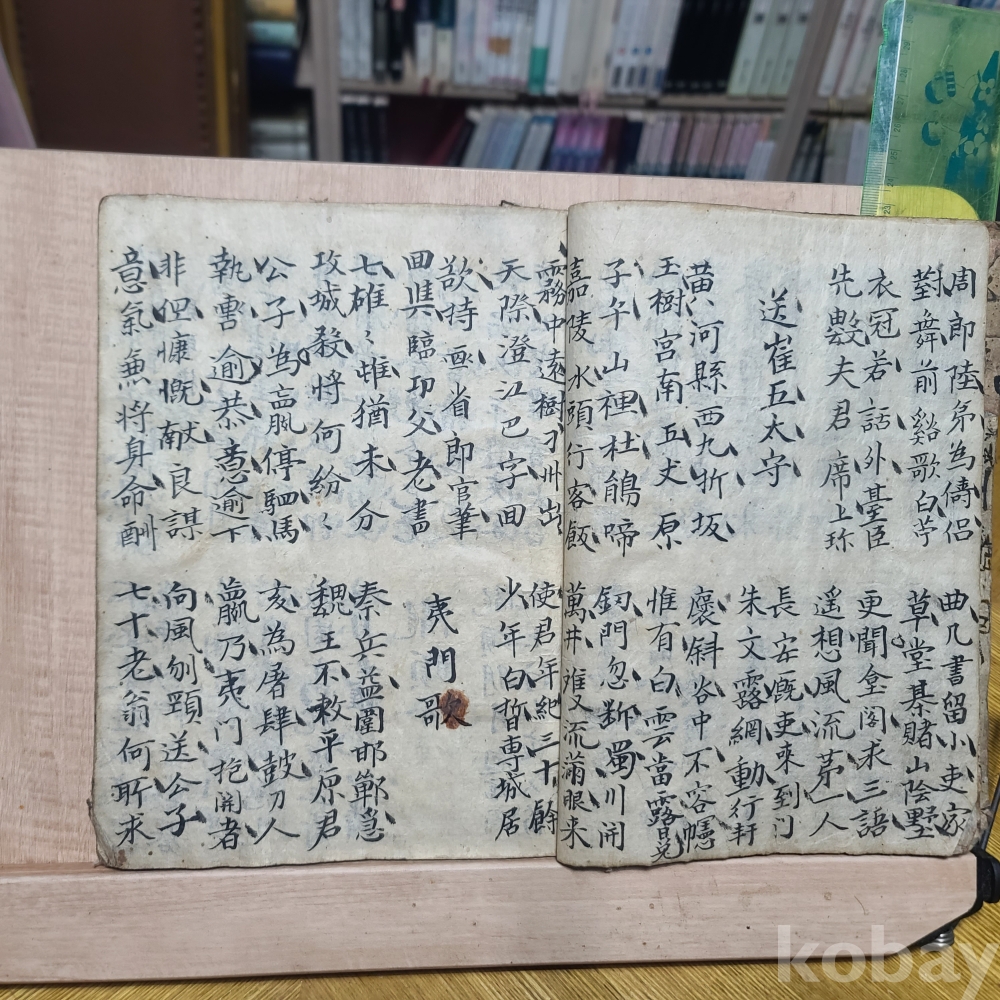 周郎陸弟為儔侶
對舞前谿歌白苧
曲几書留小吏家
草堂基賭山陰墅
衣冠若話外臺臣
先數夫君席上珎
更聞臺閣求三語
遥想風流苐一人
送崔五太守
長安厩吏來到门
朱文露網動行軒
黃河縣西九折坂
玉樹宮南五丈原
褒斜谷中不容幰
惟有白雲當露冕
子午山裡杜鵑啼
嘉陵水頭行客飯
釼門忽断蜀川開
萬井双流滿眼来
霧中遠樹刀州出
天際澄江巴字回
使君年紀三十餘
少年白晳専城居
欲持畫省郎官筆
回與臨邛父老書
夷門歌
七雄〻雄猶未分
攻城殺將何紛〻
秦兵益圍邯鄲急
魏王不救平原君
公子為嬴停駟馬
執轡逾恭意逾下
亥為屠肆鼓刀人
嬴乃夷门抱関者
非但慷慨献良謀
意氣兼將身命酬
向風刎頸送公子
七十老翁何所求
kobay